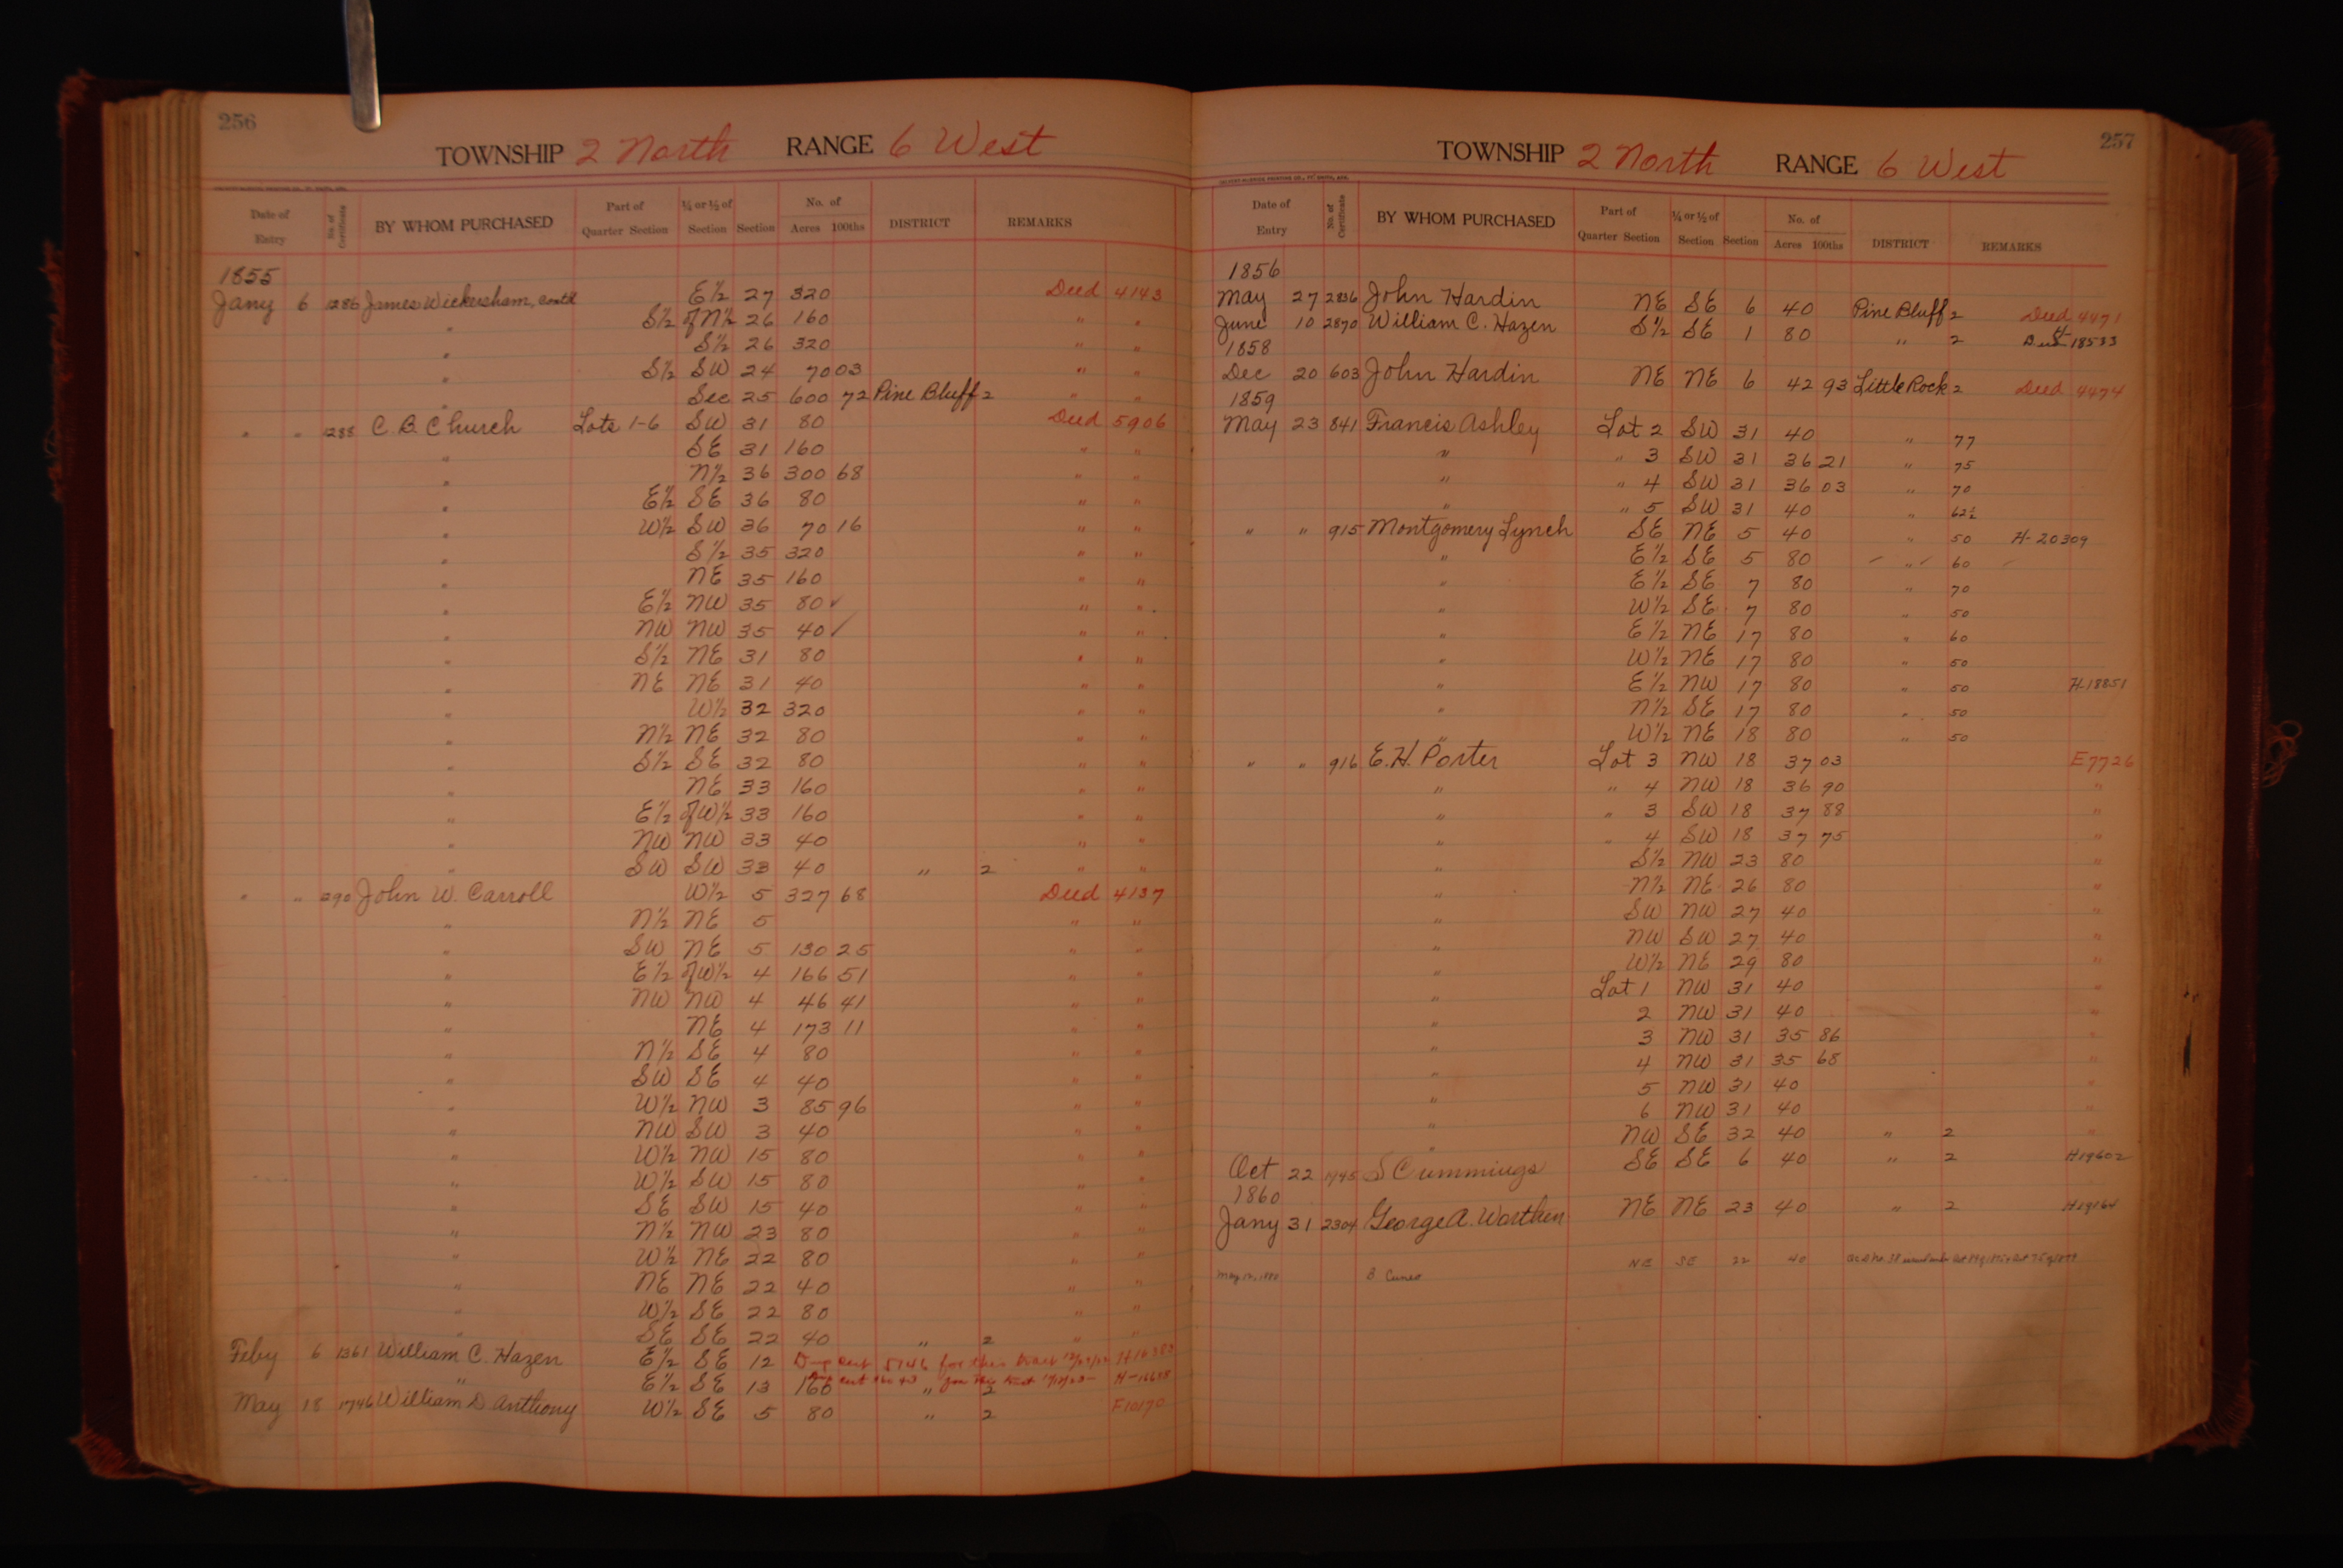 256
TOWNSHIP 2 North RANGE 6 West
Date of Entry No. of Certificate BY WHOM PURCHASED Part of Quarter Section ¼ or ½ of Section Section No. of Acres 100ths DISTRICT REMARKS
1855
Jany 6 1286 James Wickersham, contd E½ 27 320 Deed 4143
" S½ of N½ 26 160 " "
" S½ 26 320 " "
" S½ SW 24 70 03 " "
" Sec 25 600 72 Pine Bluff 2 " "
" " 1288 C. B. Church Lots 1-6 SW 31 80 Deed 5906
" SE 31 160 " "
" N½ 36 300 68 " "
" E½ SE 36 80 " "
" W½ SW 36 70 16 " "
" S½ 35 320 " "
" NE 35 160 " "
" E½ NW 35 80 ✓ " "
" NW NW 35 40 ✓ " "
" S½ NE 31 80 " "
" NE NE 31 40 " "
" W½ 32 320 " "
" N½ NE 32 80 " "
" S½ SE 32 80 " "
" NE 33 160 " "
" E½ of W½ 33 160 " "
" NW NW 33 40 " "
" SW SW 33 40 " 2 " "
" " 1290 John W. Carroll W½ 5 327 68 Deed 4137
" N½ NE 5 " "
" SW NE 5 130 25 " "
" E½ of W½ 4 166 51 " "
" NW NW 4 46 41 " "
" NE 4 173 11 " "
" N½ SE 4 80 " "
" SW SE 4 40 " "
" W½ NW 3 85 96 " "
" NW SW 3 40 " "
" W½ NW 15 80 " "
" W½ SW 15 80 " "
" SE SW 15 40 " "
" N½ NW 23 80 " "
" W½ NE 22 80 " "
" NE NE 22 40 " "
" W½ SE 22 80 " "
" SE SE 22 40 " 2 " "
Feby 6 1361 William C. Hazen E½ SE 12 Dup cert 5746 for this tract
" E½ SE 13 160 cert for this tract " 2
May 18 1746 William D. Anthony W½ SE 5 80 " 2 F10170
257
TOWNSHIP 2 North RANGE 6 West
Date of Entry No. of Certificate BY WHOM PURCHASED Part of Quarter Section ¼ or ½ of Section Section No. of Acres 100ths DISTRICT REMARKS
1856
May 27 2836 John Hardin NE SE 6 40 Pine Bluff 2 Deed 4471
June 10 2870 William C. Hazen S½ SE 1 80 " 2 18533
1858
Dec 20 603 John Hardin NE NE 6 42 93 Little Rock 2 Deed 4474
1859
May 23 841 Francis Ashley Lot 2 SW 31 40 " 77
" " 3 SW 31 36 21 " 75
" " 4 SW 31 36 03 " 70
" " 5 SW 31 40 " 62½
" " 915 Montgomery Lynch SE NE 5 40 " 50 H-20309
" E½ SE 5 80 " 60
" E½ SE 7 80 " 70
" W½ SE 7 80 " 50
" E½ NE 17 80 " 60
" W½ NE 17 80 " 50
" E½ NW 17 80 " 50 H-18851
" N½ SE 17 80 " 50
" W½ NE 18 80 " 50
" " 916 E. H. Porter Lot 3 NW 18 37 03 E7726
" " 4 NW 18 36 90 "
" " 3 SW 18 37 88 "
" " 4 SW 18 37 75 "
" S½ NW 23 80 "
" N½ NE 26 80 "
" SW NW 27 40 "
" NW SW 27 40 "
" W½ NE 29 80 "
" Lot 1 NW 31 40 "
" 2 NW 31 40 "
" 3 NW 31 35 86 "
" 4 NW 31 35 68 "
" 5 NW 31 40 "
" 6 NW 31 40 "
" NW SE 32 40 " 2 "
Oct 22 1745 S Cummings SE SE 6 40 " 2 H19602
1860
Jany 31 2304 George A. Worthen NE NE 23 40 " 2 H19164
NE SE 22 40